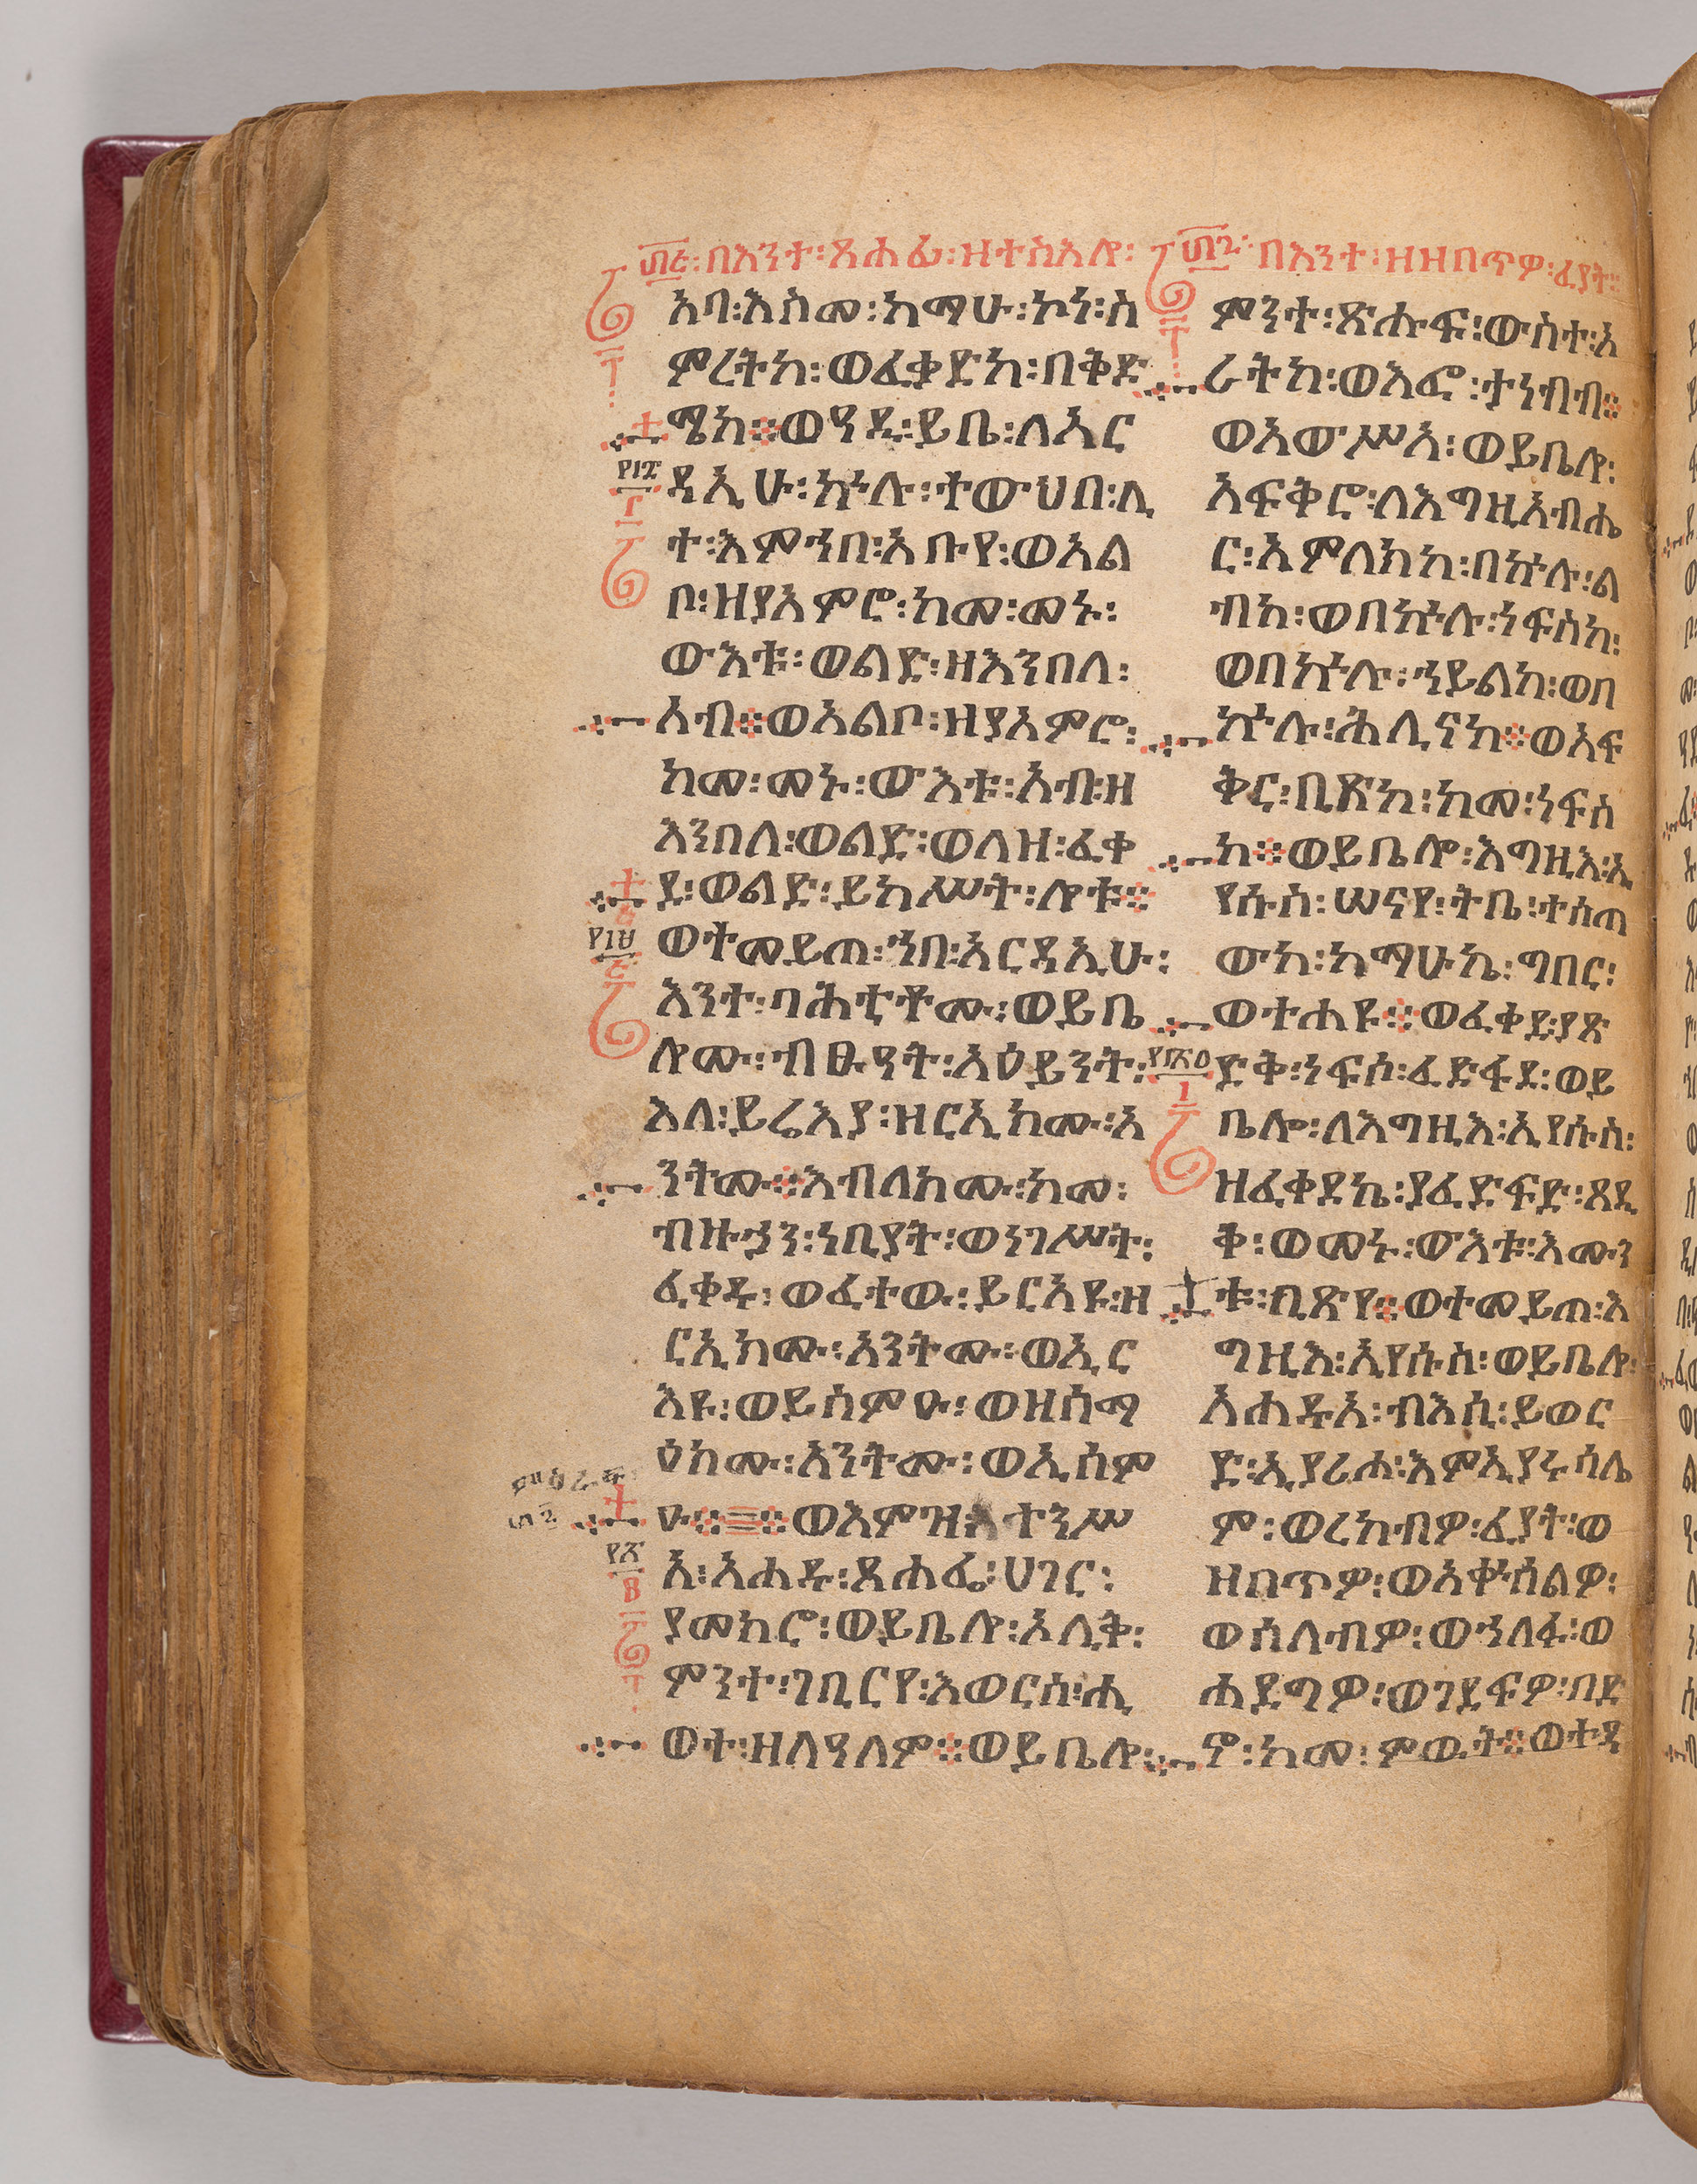 ፴፭፡ በእንተ፡ ጸሐፊ፡ ዘተስእሎ፡
አባ፡ እስመ፡ ከማሁ፡ ኮነ፡ ስ
ምረትከ፡ ወፈቃድከ፡ በቅድ
ሜከ፨ ወዓዲ፡ ይቤ፡ ለአር
ዳኢሁ፡ ኵሉ፡ ተውህበ፡ ሊ
ተ፡ እምኀበ፡ አቡየ፡ ወአል
ቦ፡ ዘያአምሮ፡ ከመ፡ መኑ፡
ውእቱ፡ ወልድ፡ ዘእንበለ፡
አብ፨ ወአልቦ፡ ዘያአምሮ፡
ከመ፡ መኑ፡ ውእቱ፡ አብ፡ ዘ
እንበለ፡ ወልድ፡ ወለዝ፡ ፈቀ
ደ፡ ወልድ፡ ይከሥት፡ ሎቱ፨
ወተመይጠ፡ ኀበ፡ አርዳኢሁ፡
እንተ፡ ባሕቲቶሙ፡ ወይቤ
ሎሙ፡ ብፁዓት፡ አዕይንት፡
እለ፡ ይሬእያ፡ ዘርኢክሙ፡ አ
ንትሙ፨ እብለክሙ፡ ከመ፡
ብዙኃን፡ ነቢያት፡ ወነገሥት፡
ፈቀዱ፡ ወፈተው፡ ይርአዩ፡ ዘ
ርኢክሙ፡ አንትሙ፡ ወኢር
እዩ፡ ወይስምዑ፡ ወዘሰማ
ዕክሙ፡ አንትሙ፡ ወኢሰም
ዑ፨ ወእምዝ ተንሥ
አ፡ አሐዱ፡ ጸሐፌ፡ ሀገር፡
ያመክሮ፡ ወይቤሎ፡ ኦሊቅ፡
ምንተ፡ ገቢርየ፡ እወርስ፡ ሕ
ወተ፡ ዘለዓለም፨ ወይቤሎ፡
በእንተ፡ ዘዘበጥዎ፡ ፈያት፡
ምንተ፡ ጽሑፍ፡ ውስተ፡ አ
ሪትከ፡ ወእፎ፡ ታነብብ፨
ወአውሥአ፡ ወይቤሎ፡
አፍቅሮ፡ ለእግዚአብሔ
ር፡ አምላክከ፡ በኵሉ፡ ል
ብከ፡ ወበኵሉ፡ ነፍስከ፡
ወበኵሉ፡ ኀይልከ፡ ወበ
ኵሉ፡ ሕሊናከ፨ ወአፍ
ቅር፡ ቢጽከ፡ ከመ፡ ነፍስ
ከ፨ ወይቤሎ፡ እግዚእ፡ ኢ
የሱስ፡ ሠናየ፡ ትቤ፡ ተሰጠ
ውከ፡ ከማሁኬ፡ ግበር፡
ወተሐዩ፨ ወፈቀደ፡ ያጽ
ድቅ፡ ነፍሶ፡ ፈድፋደ፡ ወይ
ቤሎ፡ ለእግዚእ፡ ኢየሱስ፡
ዘፈቀደኬ፡ ያፈድፍድ፡ ጸዲ
ቅ፡ ወመኑ፡ ውእቱ፡ እሙን
ቱ፡ ቢጽየ፨ ወተመይጠ፡ እ
ግዚእ፡ ኢየሱስ፡ ወይቤሎ፡
አሐዱአ፡ ብእሲ፡ ይወር
ድ፡ ኢያሪሖ፡ እምኢያሩሳሌ
ም፡ ወረከብዎ፡ ፈያት፡ ወ
ዘበጥዎ፡ ወአቍሰልዎ፡
ወሰለብዎ፡ ወኀለፉ፡ ወ
ሐደግዎ፡ ወገደፍዎ፡ በድ
ኖ፡ ከመ፡ ምውት፨ ወተዳ